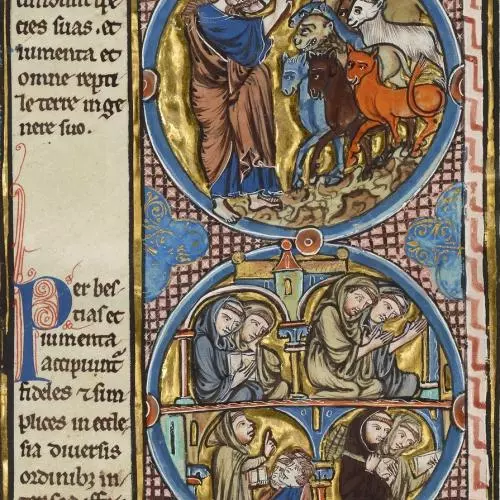 cies suas. et
iumenta et
omne repti
le terre in ge
nere suo.
Per bes-
tias et
iumenta
accipiunt᷑
fideles ⁊ sim
plices in eccle
sia diuersis
ordinibꝫ in